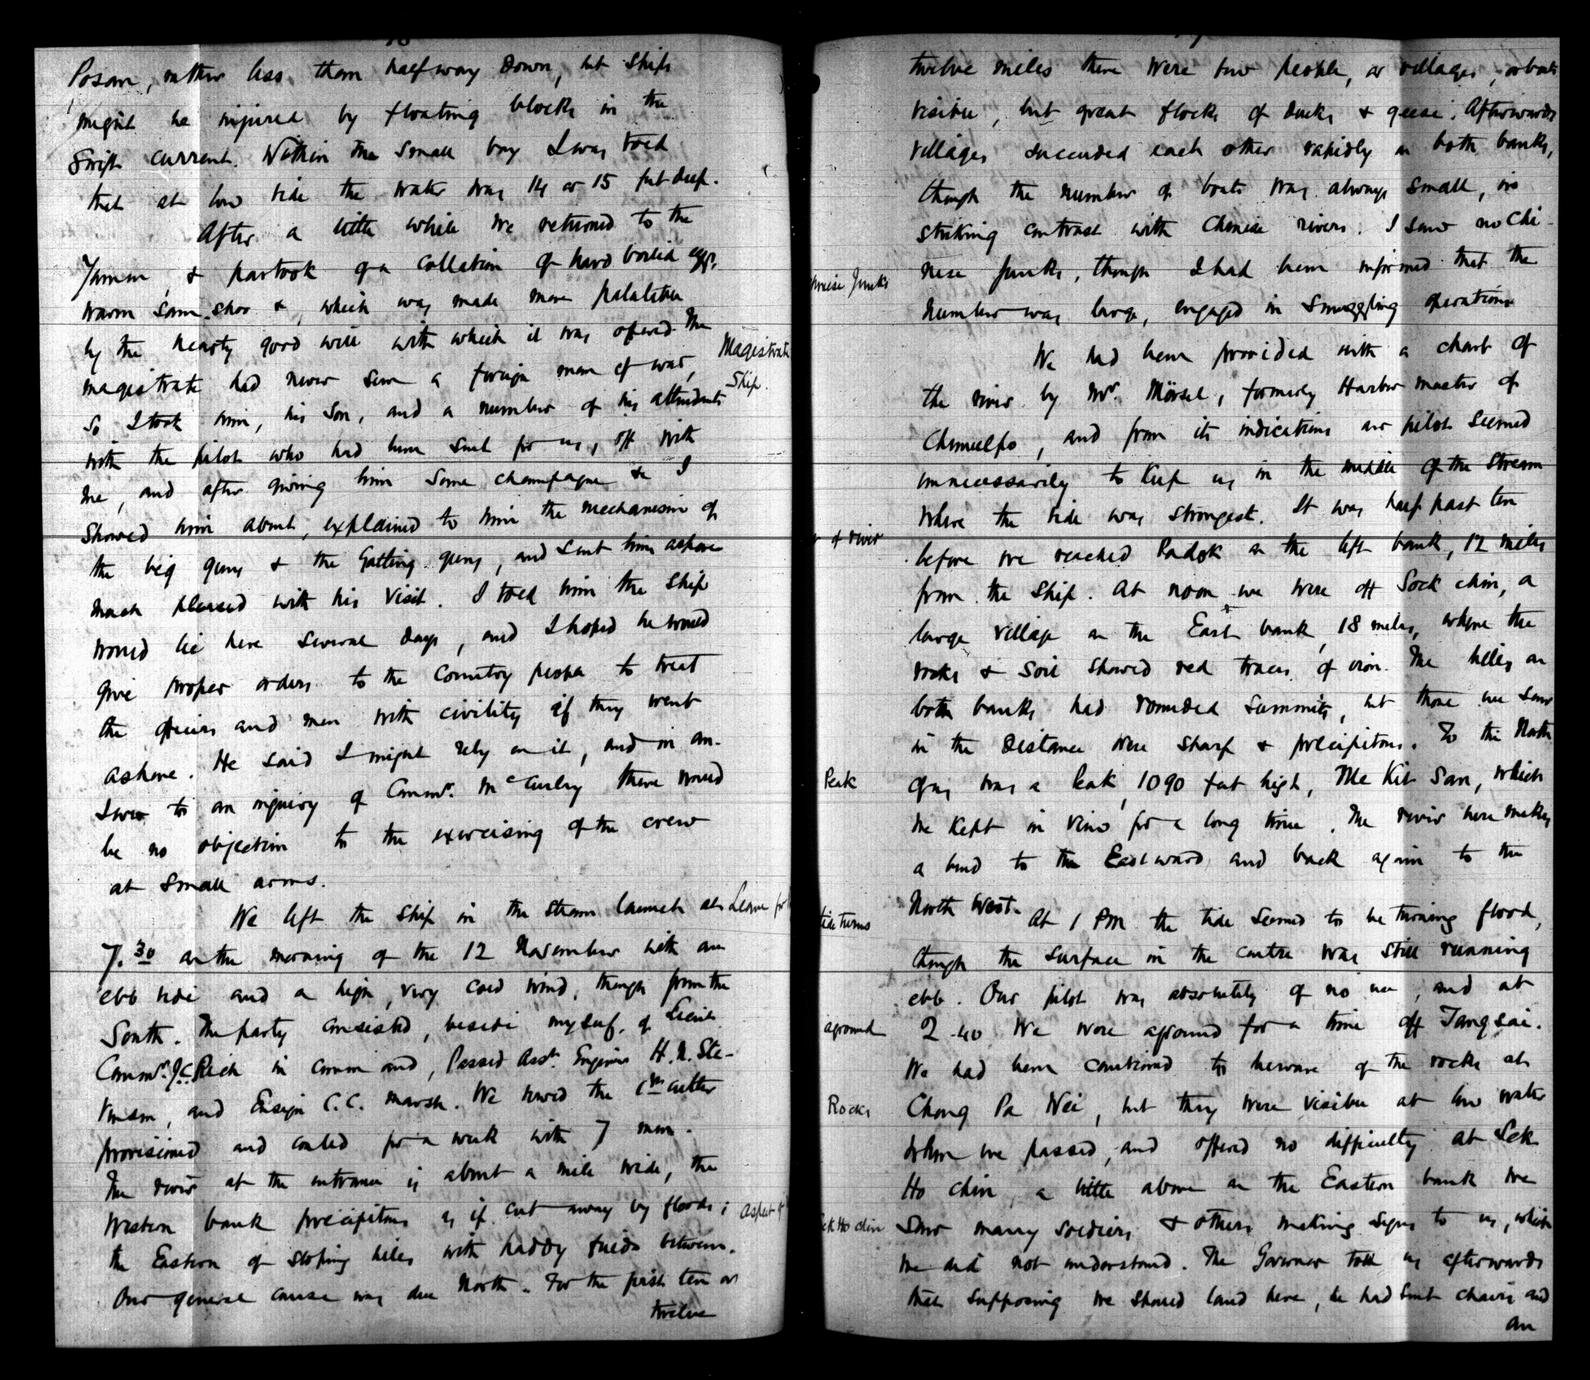 Posan, rather less than half way down, but ships
might be injured by floating blocks in the
swift current. Within the small bay I was told
that at low tide the water was 14 or 15 feet deep.
After a little while we returned to the
Yamun, & partook of a collation of hard boiled eggs,
warm Sam-shoo &, which was made more palatable
by the hearty good will with which it was offered. The
Magistrate
Ship.
magistrate had never seen a foreign man of war,
so I took him, his son, and a number of his attendants
with the pilot who had been sent for us, off with
me, and after giving him some champagne &c I
showed him about, explained to him the mechanism of
the big guns & the Gatling guns, and sent him ashore
much pleased with his visit. I told him the ship
would lie here several days, and I hoped he would
give proper orders to the country people to treat
the officers and men with civility if they went
ashore. He said I might rely on it, and in an-
swer to an inquiry of Commr. McCurley there would
be no objection to the exercising of the crew
at small arms.
We left the ship in the steam launch at
Leave for
7.30 on the morning of the 12 November with an
ebb tide and a high, very cold wind, though from the
South. The party consisted, beside myself, of Lieut
Commr. J.C. Rich in command, Passed Asst. Engineer H. N. Ste-
venson, and Ensign C.C. Marsh. We towed the cutter
provisioned and coaled for a week with 7 men.
The river at the entrance is about a mile wide, the
Western bank precipitous as if cut away by floods;
aspect of
the Eastern of sloping hills with paddy fields between.
Our general course was due North. For the first ten or
twelve
twelve miles there were few people, or villages, or boats
visible, but great flocks of ducks & geese. Afterwards
villages succeeded each other rapidly on both banks,
though the number of boats was always small, in
striking contrast with Chinese rivers. I saw no Chi-
nese Junks
nese junks, though I had been informed that the
number was large, engaged in smuggling operations
We had been provided with a chart of
the river by Mr. Mörsel, formerly Harbor master of
Chemulpo, and from its indications our pilot seemed
unnecessarily to keep us in the middle of the stream
where the tide was strongest. It was half past ten
of river
before we reached Padok on the left bank, 12 miles
from the ship. At noon we were off Sock chin, a
large village on the East bank, 18 miles, where the
rocks & soil showed red traces of iron. The hills on
both banks had rounded summits, but those we saw
in the distance were sharp & precipitous. To the North
Peak
of us was a Peak, 1090 feet high, Me Kit San, which
we kept in view for a long time. The river here makes
a bend to the Eastward and back again to the
North West.
tide turns
At 1 PM the tide seemed to be turning flood,
though the surface in the centre was still running
ebb. Our pilot was absolutely of no use, and at
aground
2.40 we were aground for a time off Tangsai.
We had been cautioned to beware of the rocks at
Rocks
Chong Pa Wei, but they were visible at low water
when we passed, and offered no difficulty. At Sek
Ho chin, a little above on the Eastern bank we
Sek Ho chin
saw many soldiers & others making signs to us, which
we did not understand. The Governor told us afterwards
that supposing we should land here, he had sent chairs and
an